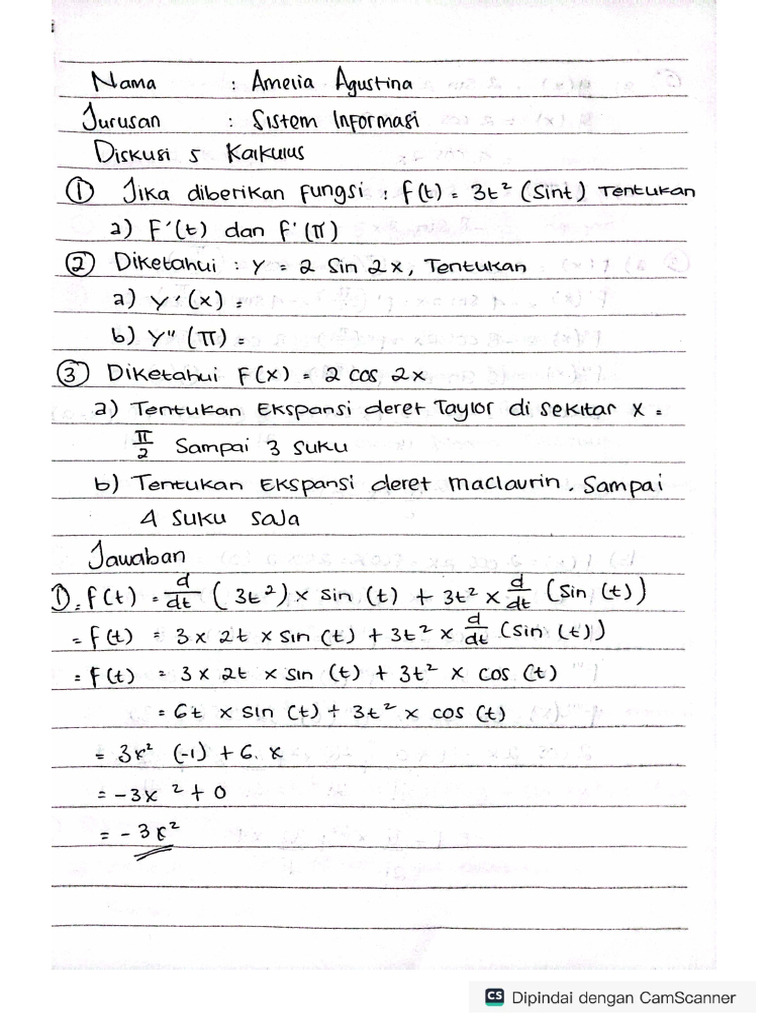 Nama : Amelia Agustina
Jurusan : Sistem Informasi
Diskusi 5 Kalkulus
① Jika diberikan fungsi : f(t) = 3t² (sint) Tentukan
a) F'(t) dan f'(π)
② Diketahui : y = 2 sin 2x, Tentukan
a) y'(x) =
b) y"(π) =
③ Diketahui F(x) = 2 cos 2x
a) Tentukan Ekspansi deret Taylor di sekitar x =
π/2 Sampai 3 suku
b) Tentukan Ekspansi deret maclaurin. Sampai
4 suku saja
Jawaban
1). f(t) = d/dt (3t²) x sin (t) + 3t² x d/dt (sin (t))
= f(t) = 3 x 2t x sin (t) + 3t² x d/dt (sin (t))
= f(t) = 3 x 2t x sin (t) + 3t² x cos (t)
= 6t x sin (t) + 3t² x cos (t)
= 3x² (-1) + 6. x
= -3x² + 0
= -3x²
CS Dipindai dengan CamScanner